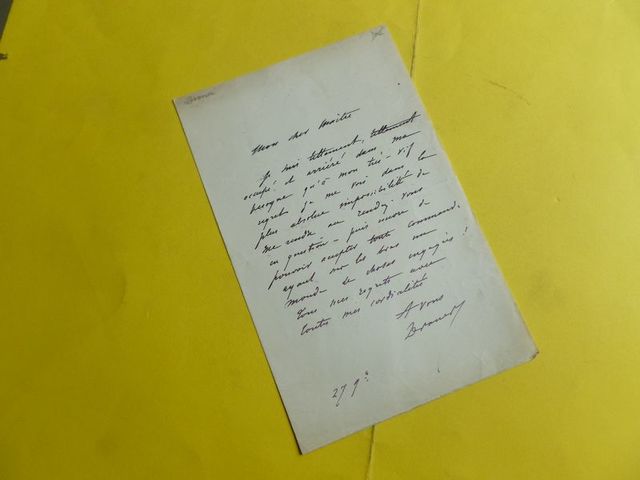 Mon cher Maître
Je suis tellement, tellement
occupé et arriéré dans ma
besogne qu'à mon très-vif
regret je me vois dans la
plus absolue impossibilité de
me rendre au rendez-vous
en question - puis encore de
pouvoir accepter toute command.
ayant sur les bras un
monde de choses engagées !
Tous mes regrets avec
toutes mes cordialités
A vous
27 9e